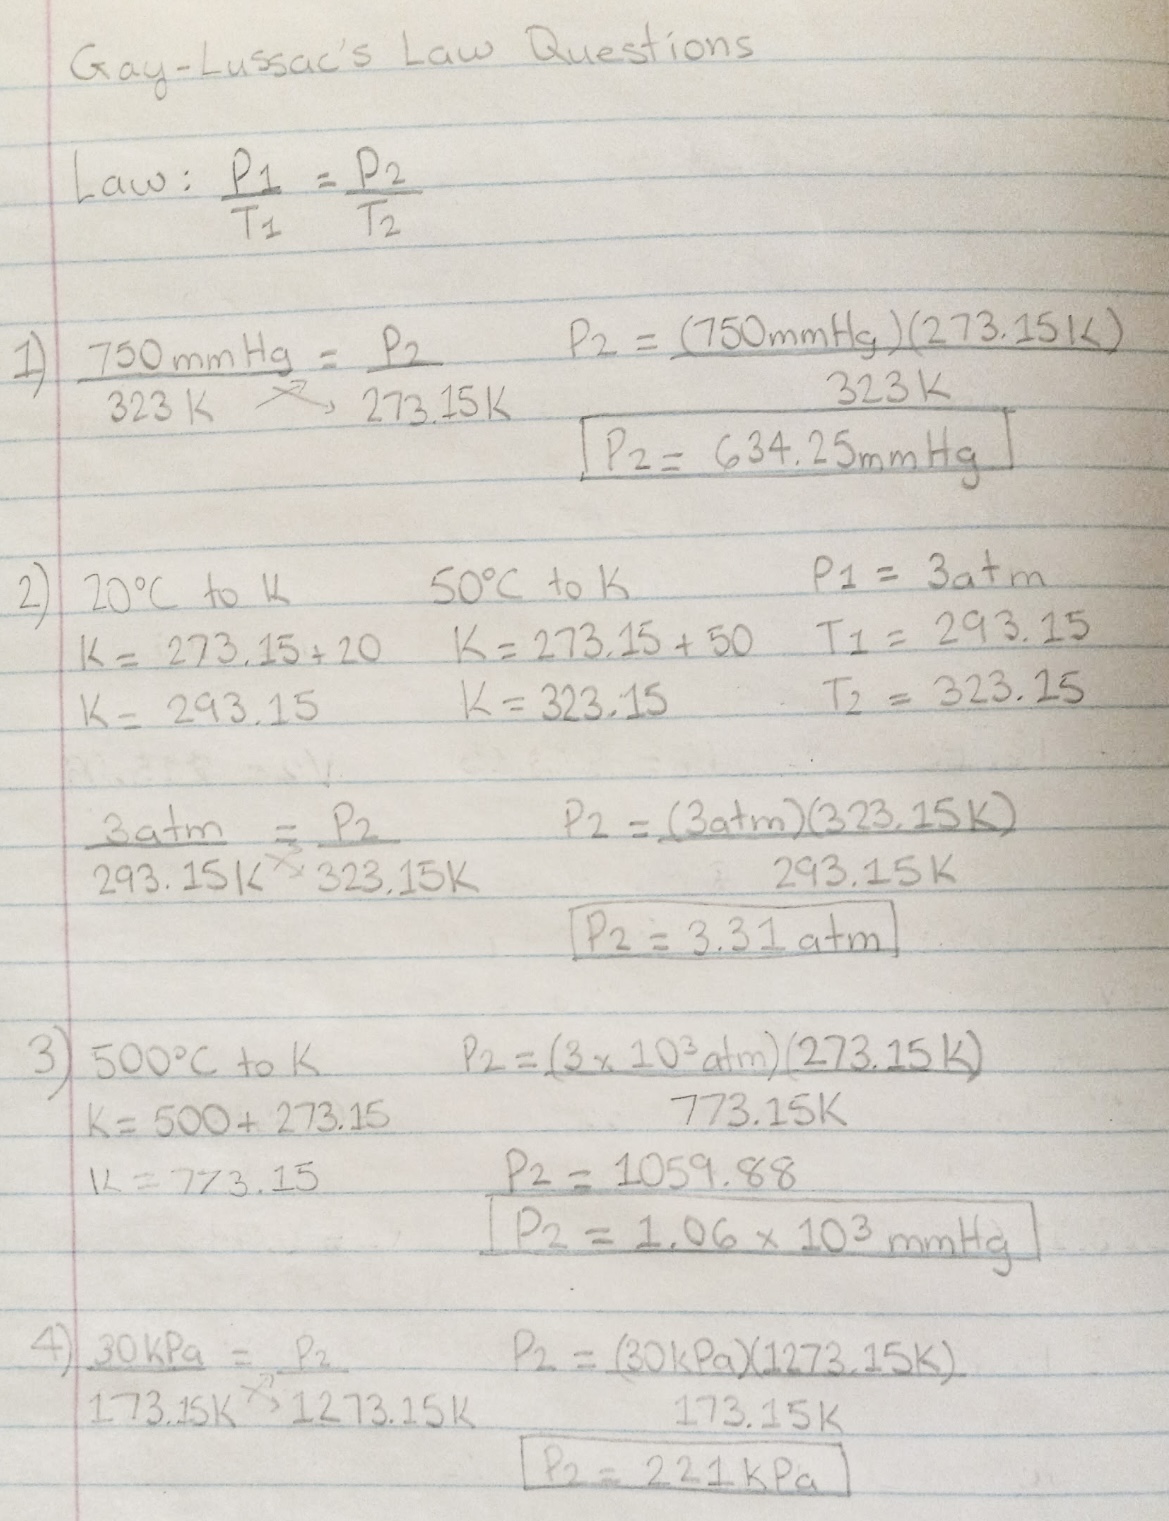 Gay-Lussac's Law Questions
Law: P1/T1 = P2/T2
1) 750mmHg/323K = P2/273.15K
P2 = (750mmHg)(273.15K)/323K
P2 = 634.25mmHg
2) 20°C to K
K = 273.15+20
K = 293.15
50°C to K
K = 273.15 + 50
K = 323.15
P1 = 3atm
T1 = 293.15
T2 = 323.15
3atm/293.15K = P2/323.15K
P2 = (3atm)(323.15K)/293.15K
P2 = 3.31 atm
3) 500°C to K
K = 500 + 273.15
K = 773.15
P2 = (3 x 10³ atm)(273.15K)/773.15K
P2 = 1059.88
P2 = 1.06 x 10³ mmHg
4) 30kPa/173.15K = P2/1273.15K
P2 = (30kPa)(1273.15K)/173.15K
P2 = 221kPa